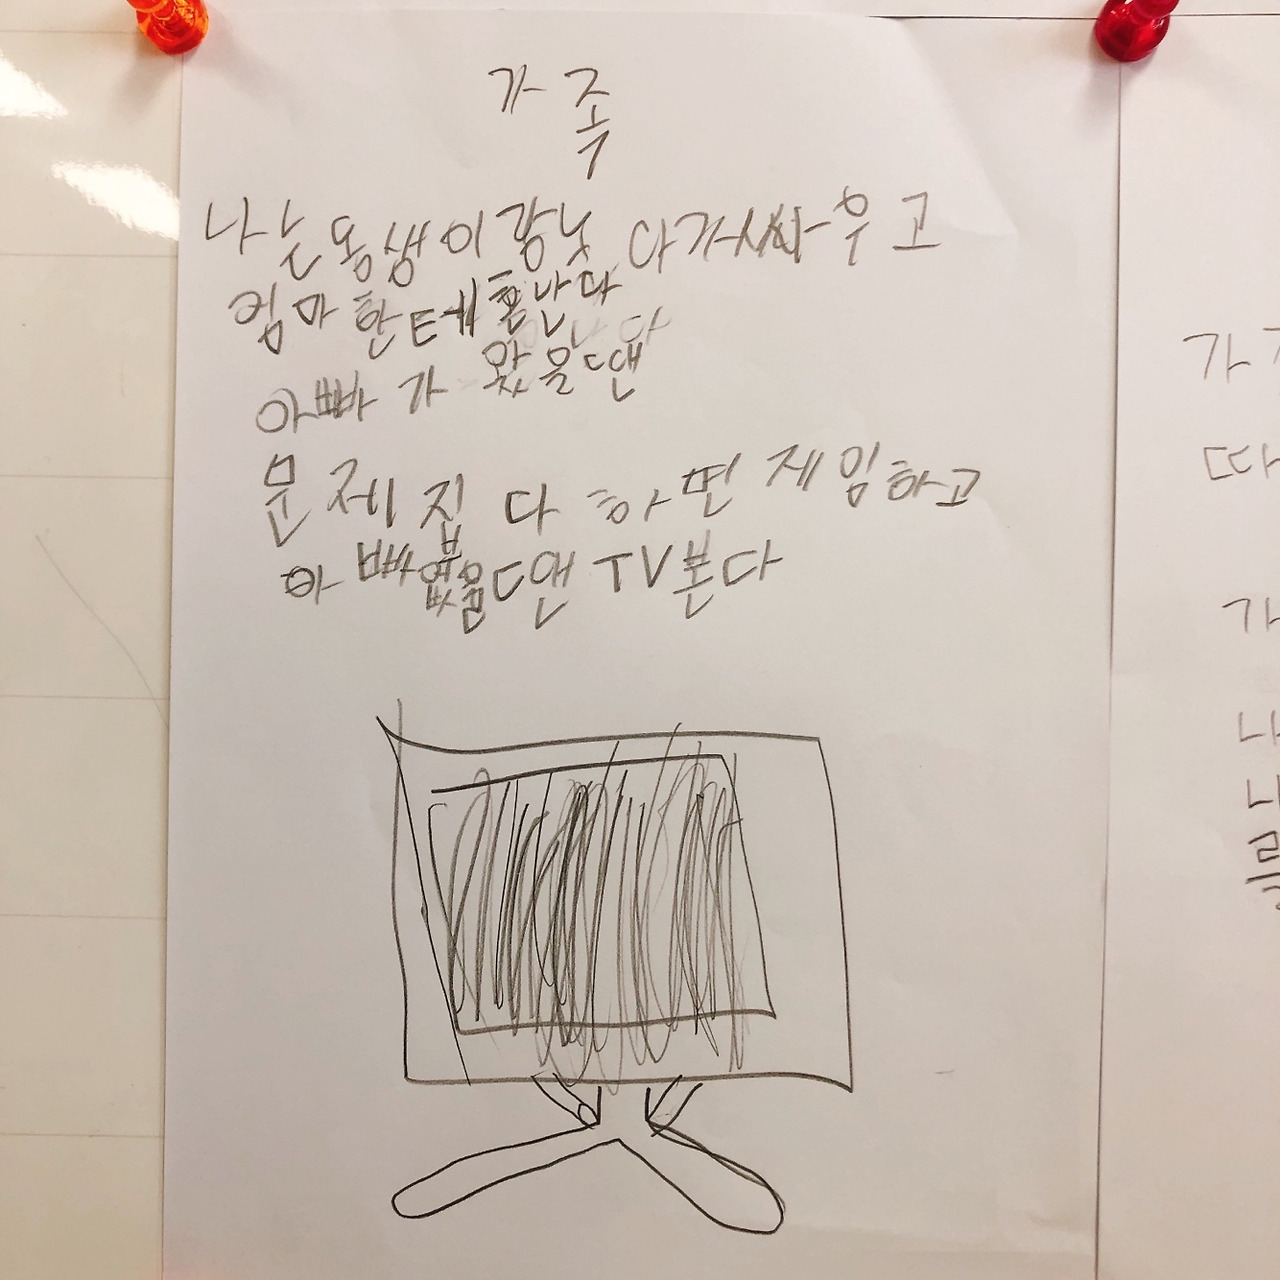 가족
나는 동생이랑 놋다가 싸우고
엄마한테 혼난다
아빠가 왔을땐
문제집 다 하면 게임하고
아빠 없을땐 TV본다
가
따
가
나